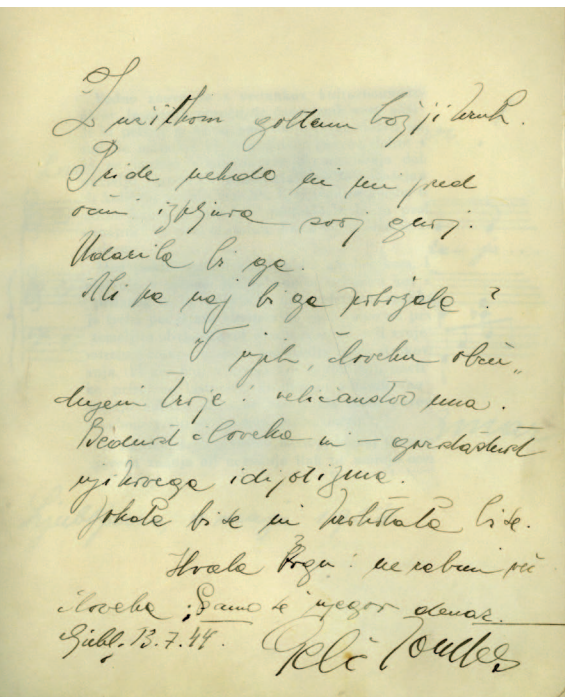 Z užitkom goltam božji kruh.
Pride nekdo in mi pred
očmi izpljuva svoj gnoj.
Udarila bi ga.
Ali pa naj bi ga pobožala?
V njih, človeku obču-
dujem troje: veličanstvo uma.
Bednost človeka in –
njihovega idijotizma.
Jokala bi se in krohotala bi se.
Hvala Bogu: ne rabim več
človeka. Samo še njegov denar.
Ljubl. 13.7.44.